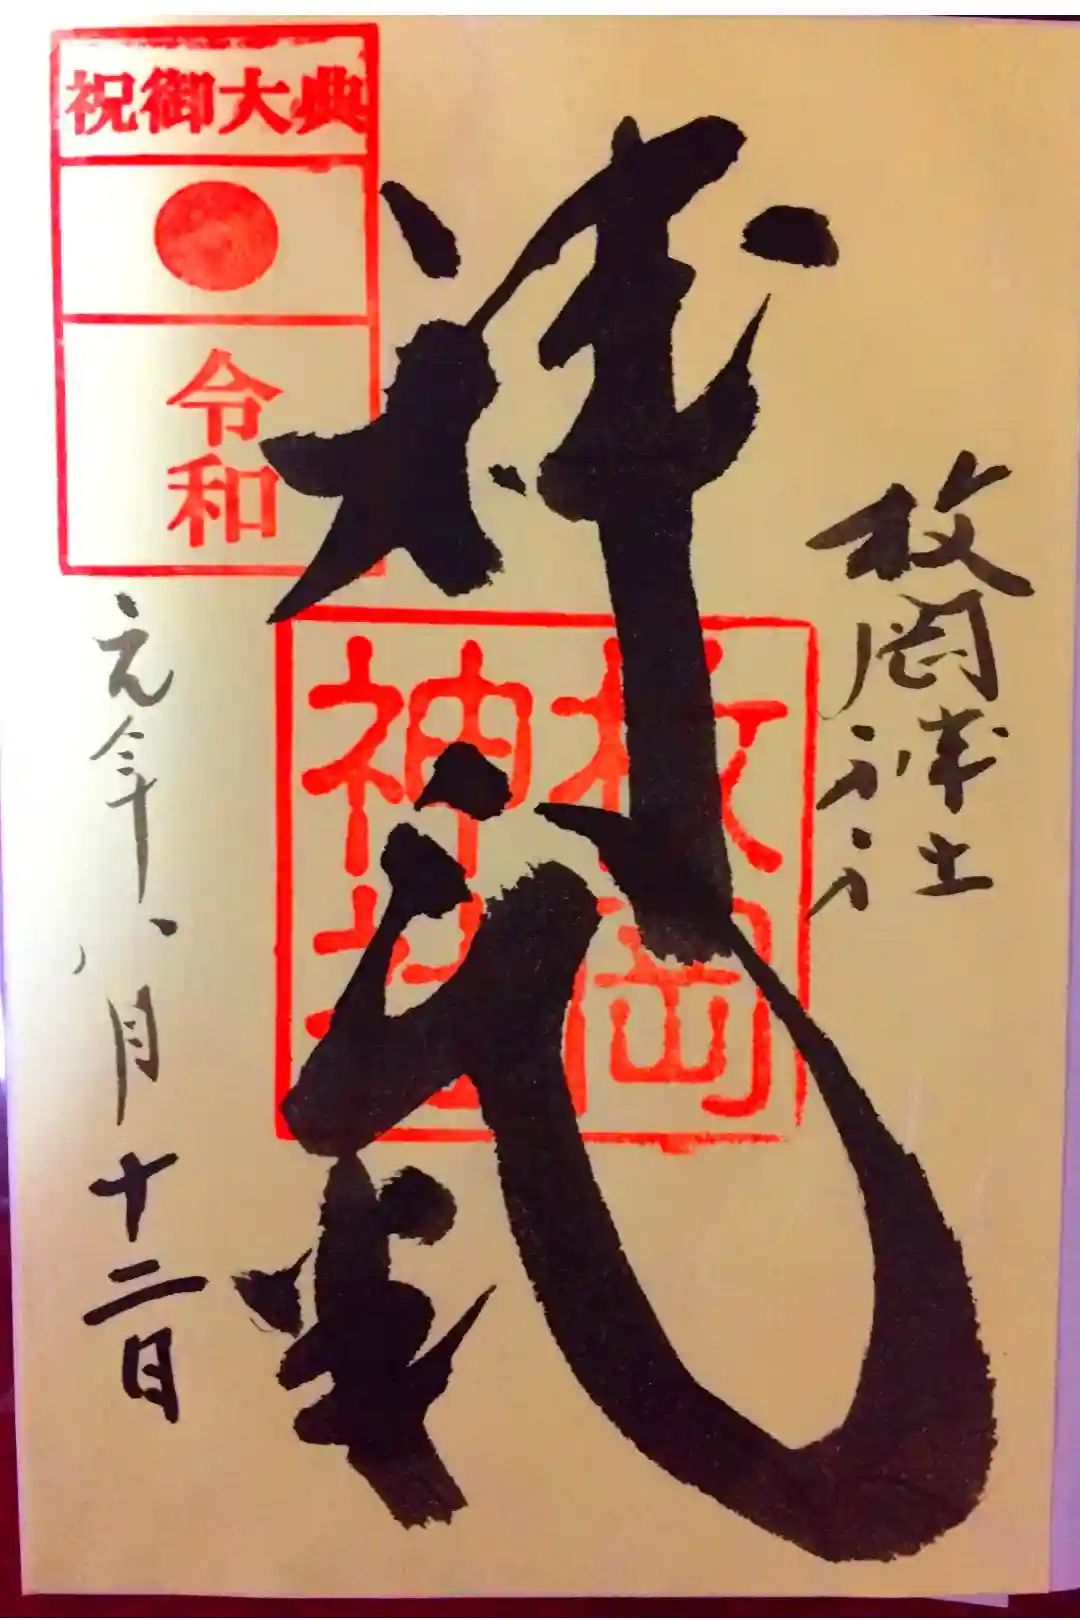 枚岡神社
神氣
枚岡
神社
祝御大典
令和
元年八月十二日